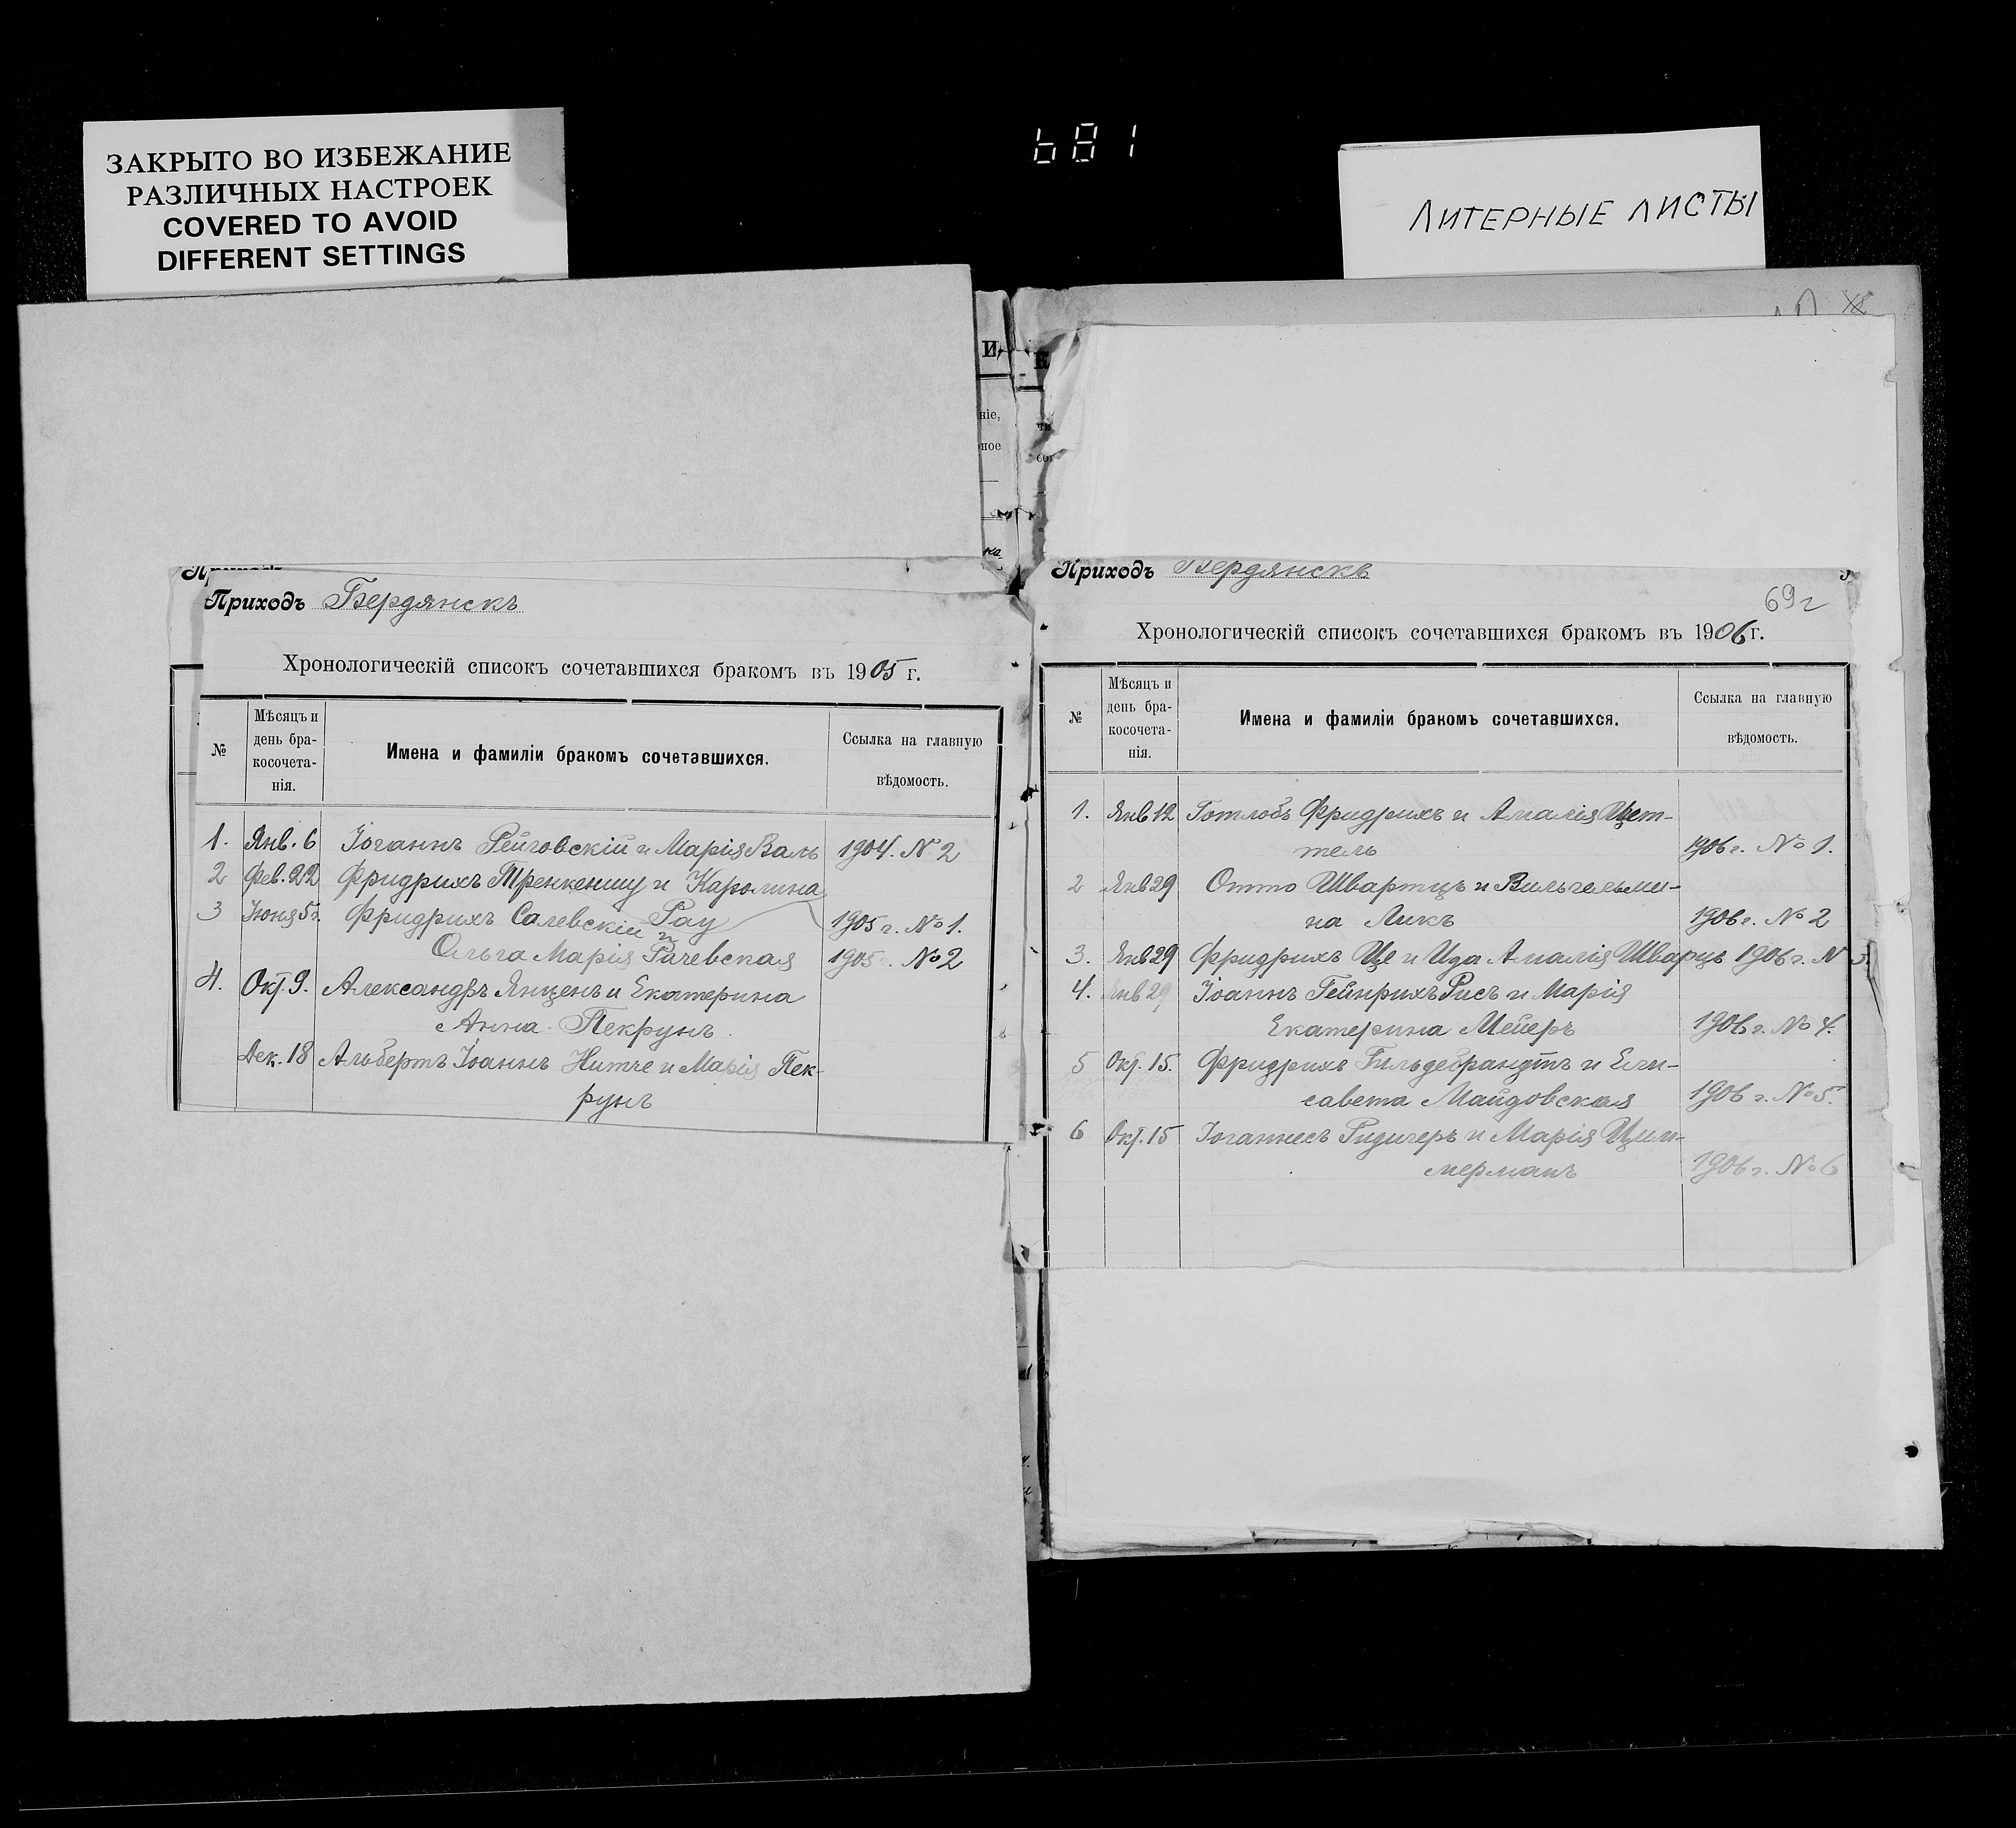 ЗАКРЫТО ВО ИЗБЕЖАНИЕ
РАЗЛИЧНЫХ НАСТРОЕК
COVERED TO AVOID
DIFFERENT SETTINGS
ЛИТЕРНЫЕ ЛИСТЫ
Приходъ Бердянскъ
Хронологическій списокъ сочетавшихся бракомъ въ 1905 г.
№
Мѣсяцъ и
день бра-
косочета-
нія.
Имена и фамиліи бракомъ сочетавшихся.
Ссылка на главную
вѣдомость.
1. Янв. 6 Іоганнъ Рейговскій и Марія Валь 1904. N 2
2 Фев. 22 Фридрихъ Тренкеншу и Каролина
Рау 1905 г. № 1.
3 Іюня 5 Фридрихъ Салевскій и
Ольга Марія Рачевская 1905 г. № 2
4. Окт. 9. Александръ Янценъ и Екатерина
Анна Пекрунъ.
Дек. 18 Альбертъ Іоаннъ Нитче и Марія Пек-
рунъ
Приходъ Бердянскъ
69г
Хронологическій списокъ сочетавшихся бракомъ въ 1906 г.
№
Мѣсяцъ и
день бра-
косочета-
нія.
Имена и фамиліи бракомъ сочетавшихся.
Ссылка на главную
вѣдомость.
1. Янв 12 Готлобъ Фридрихъ и Амалія Цет-
тель 1906 г. № 1.
2 Янв 29 Отто Швартцъ и Вильгельми-
на Ликъ 1906 г. № 2
3. Янв 29 Фридрихъ Це и Ида Амалія Шварцъ 1906 г. N 3
4. Янв 29 Іоаннъ Гейнрихъ Рисъ и Марія
Екатерина Мейеръ 1906 г. № 4.
5 Окт. 15. Фридрихъ Гильдебрандтъ и Ели-
савета Майдовская 1906 г. № 5.
6 Окт. 15 Іоганнесъ Ридигеръ и Марія Цим-
мерманъ 1906 г. № 6